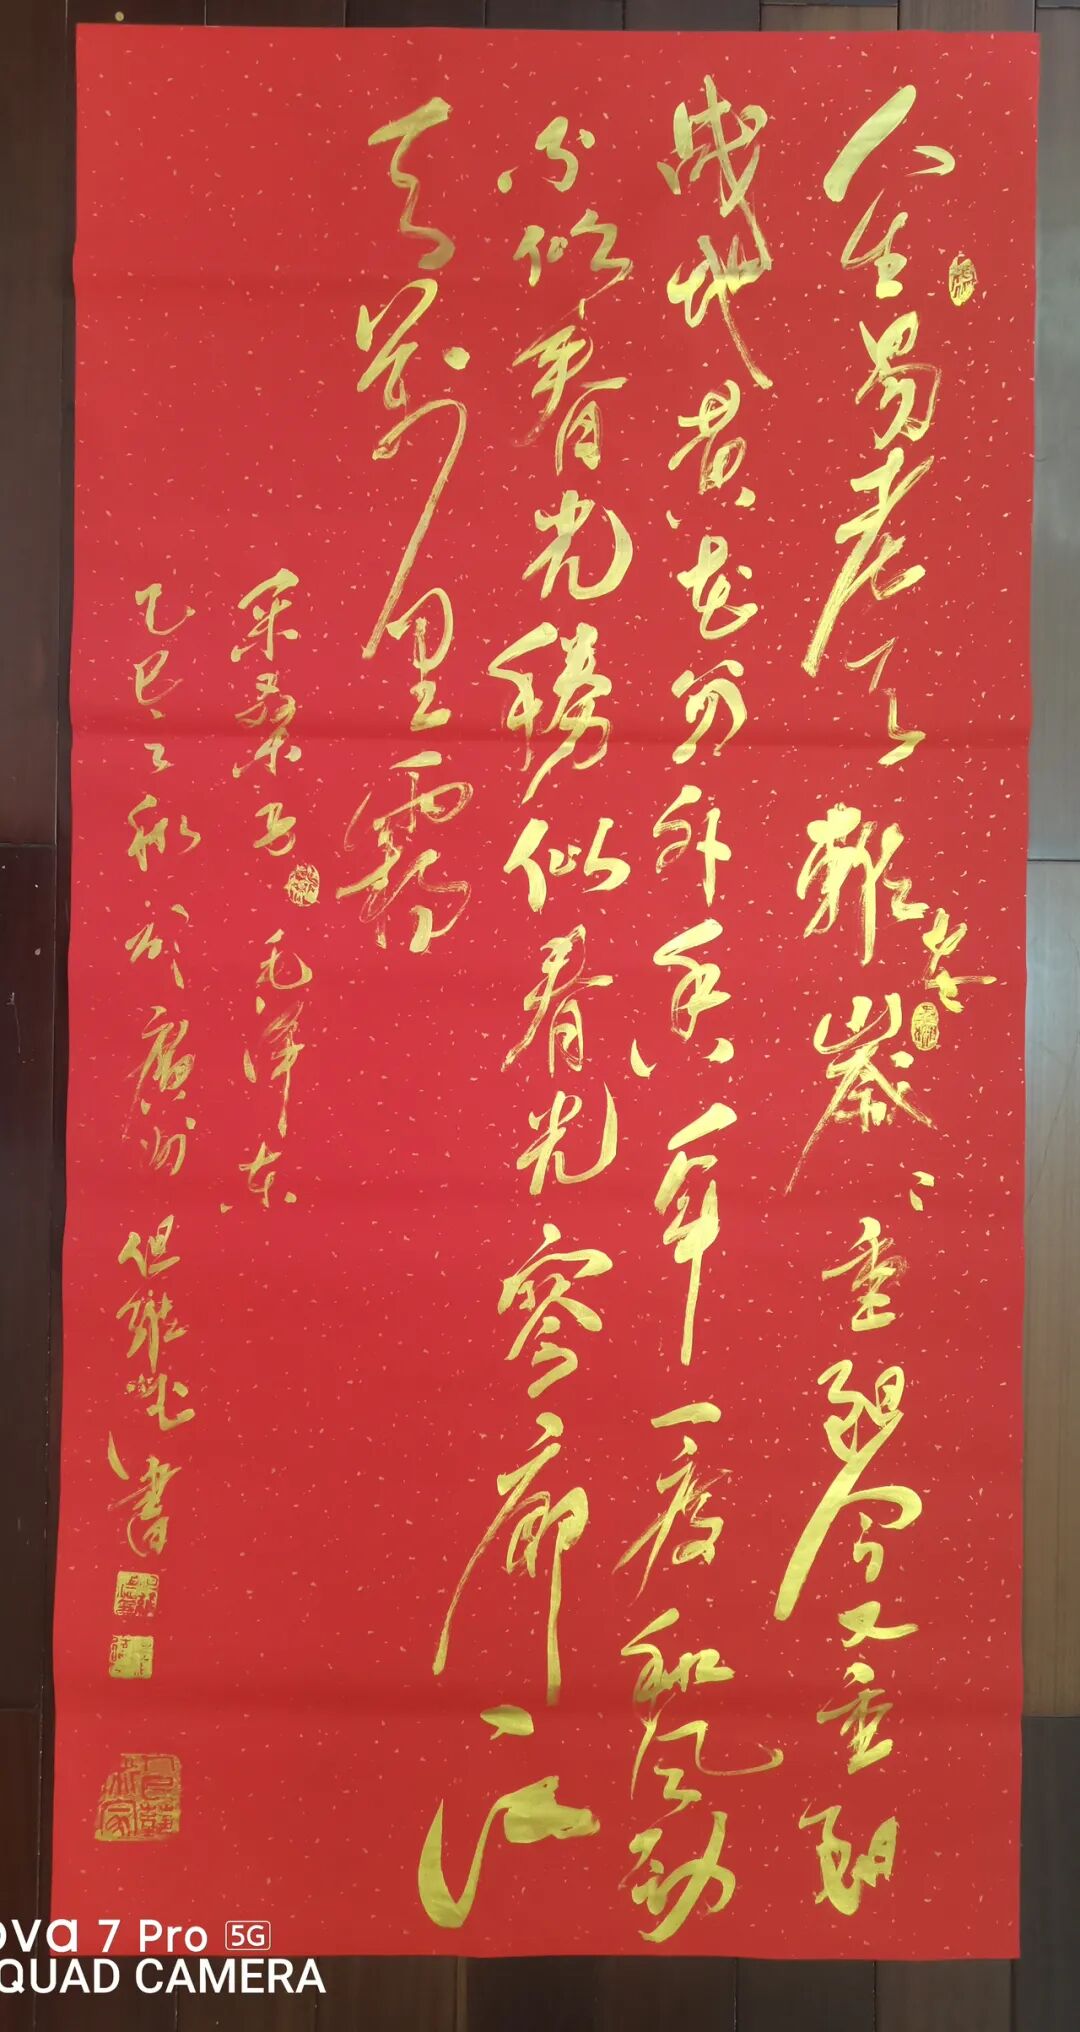 人生易老天難老歲歲重阳今又重阳
战地黄花分外香一年一度秋风劲
不似春光勝似春光寥廓江
天萬里霜
采桑子 毛泽东
乙巳之秋於廣州但維書
ova 7 Pro 5G
QUAD CAMERA